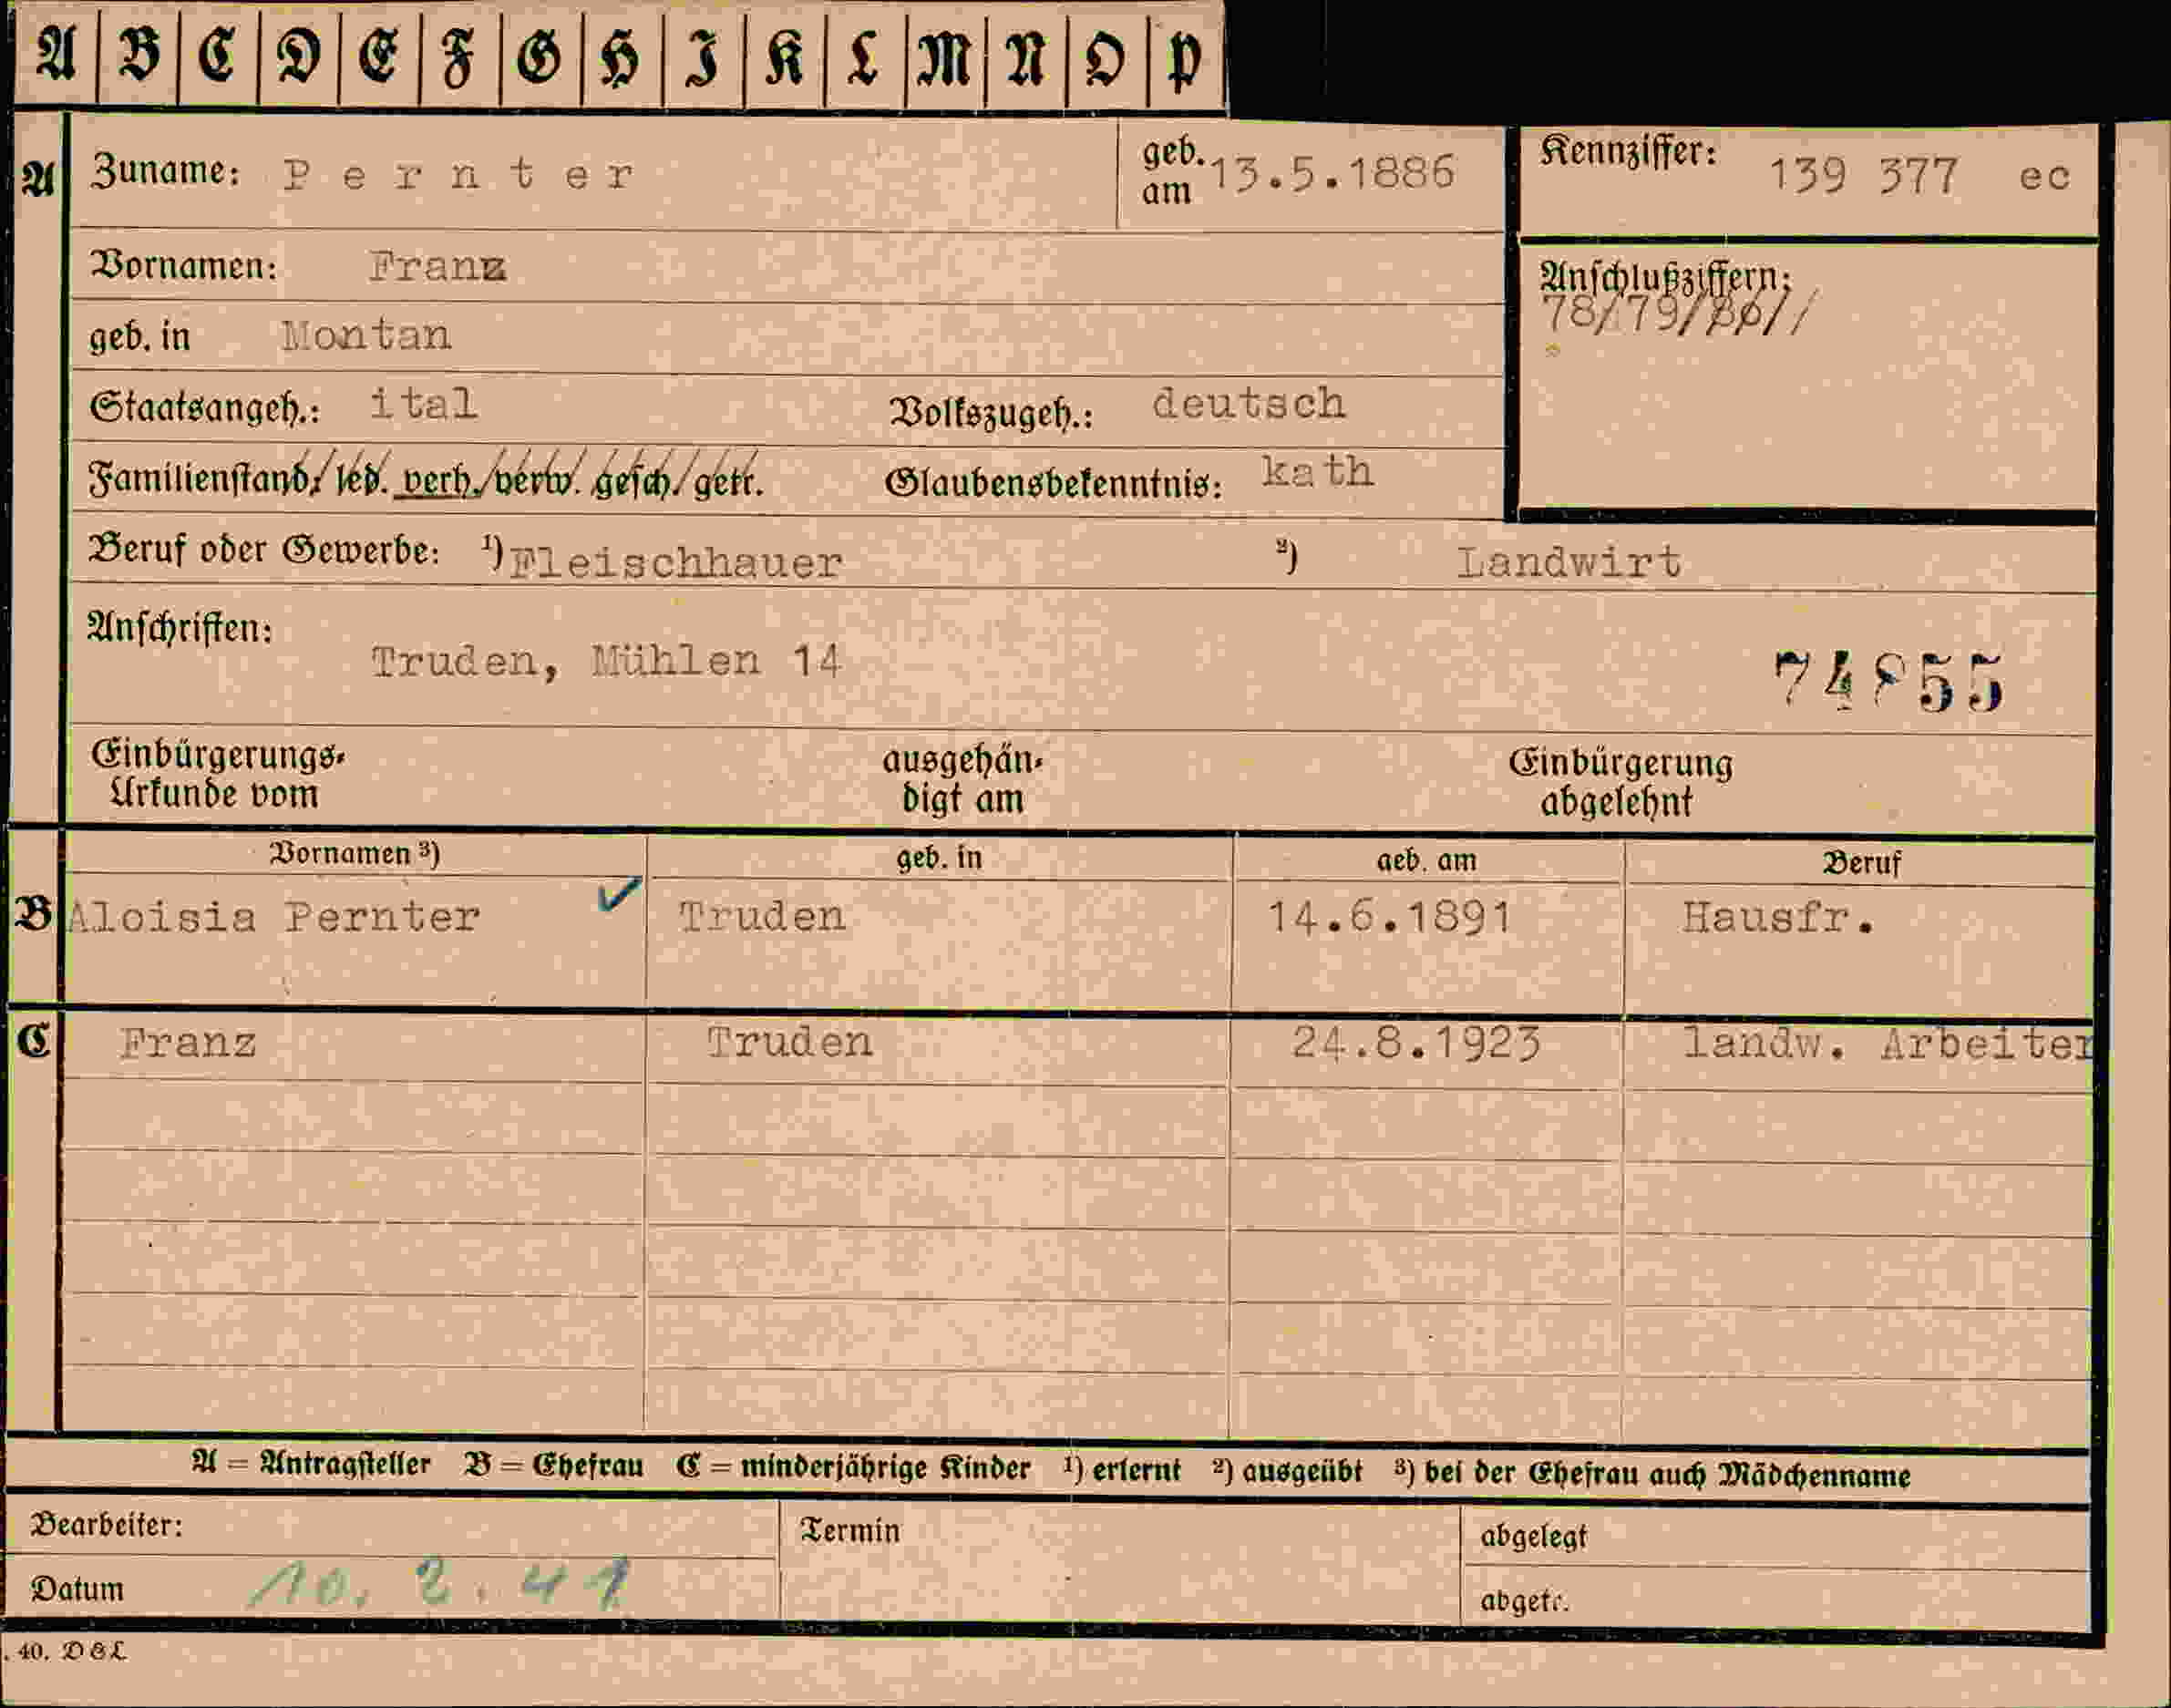 A B C D E F G H I K L M N O P
A Zuname: Pernter geb. am 13.5.1886 Kennziffer: 139 377 ec
Vornamen: Franz
Anschlußziffern:
78/79/
geb. in Montan
Staatsangeh.: ital Volkszugeh.: deutsch
Familienstand: led. verh. verw. gesch. getr. Glaubensbekenntnis: kath
Beruf oder Gewerbe: ¹) Fleischhauer ²) Landwirt
Anschriften:
Truden, Mühlen 14
74855
Einbürgerungs-Urkunde vom ausgehändigt am Einbürgerung abgelehnt
Vornamen ³) geb. in geb. am Beruf
B Aloisia Pernter ✓ Truden 14.6.1891 Hausfr.
C Franz Truden 24.8.1923 landw. Arbeiter
A = Antragsteller B = Ehefrau C = minderjährige Kinder ¹) erlernt ²) ausgeübt ³) bei der Ehefrau auch Mädchenname
Bearbeiter: Termin abgelegt
Datum 10. 2. 41 abgetr.
. 40. DGL